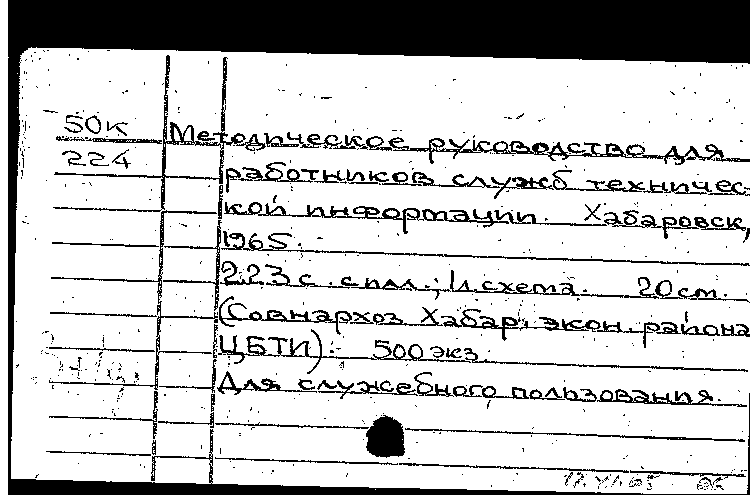 50К
224
Методическое руководство для
работников служб техничес-
кой информации. Хабаровск,
1965.
223 с. с илл.; 1 л. схема. 20 см.
(Совнархоз Хабар. экон. района
ЦБТИ). 500 экз.
Для служебного пользования.